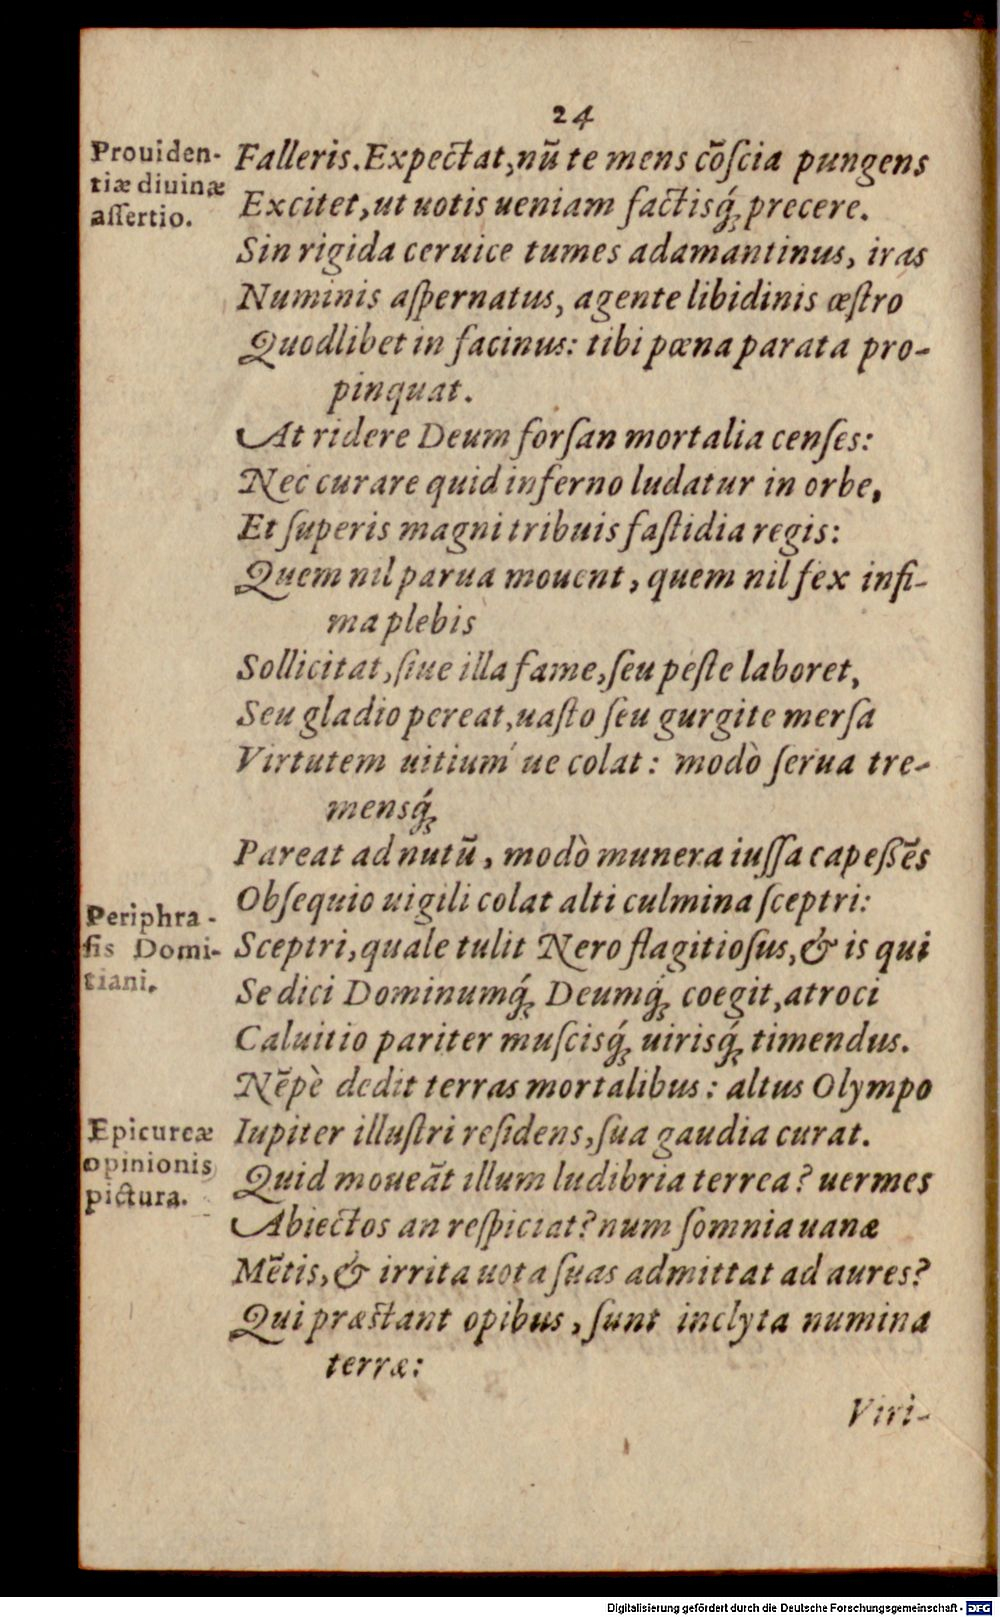 24
Prouiden-
tiæ diuinæ
aſſertio.
Falleris. Expectat, nū te mens cōſcia pungens
Excitet, ut uotis ueniam factisq́; precere.
Sin rigida ceruice tumes adamantinus, iras
Numinis aſpernatus, agente libidinis œſtro
Quodlibet in facinus: tibi pœna parata pro-
pinquat.
At ridere Deum forſan mortalia cenſes:
Nec curare quid inferno ludatur in orbe,
Et ſuperis magni tribuis faſtidia regis:
Quem nil parua mouent, quem nil fex infi-
ma plebis
Sollicitat, ſiue illa fame, ſeu peſte laboret,
Seu gladio pereat, uaſto ſeu gurgite merſa
Virtutem uitium ́ue colat: modò ſerua tre-
mensq́;
Pareat ad nutū, modò munera iuſſa capeßēs
Obſequio uigili colat alti culmina ſceptri:
Periphra-
ſis Domi-
tiani.
Sceptri, quale tulit Nero flagitioſus, & is qui
Se dici Dominumq́; Deumq́; coegit, atroci
Caluitio pariter muſcisq́; uirisq́; timendus.
Nēpè dedit terras mortalibus: altus Olympo
Epicureæ
opinionis
pictura.
Iupiter illuſtri reſidens, ſua gaudia curat.
Quid moueāt illum ludibria terrea? uermes
Abiectos an reſpiciat? num ſomnia uanæ
Mētis, & irrita uota ſuas admittat ad aures?
Qui præstant opibus, ſunt inclyta numina
terræ:
Viri-
Digitalisierung gefördert durch die Deutsche Forschungsgemeinschaft - DFG